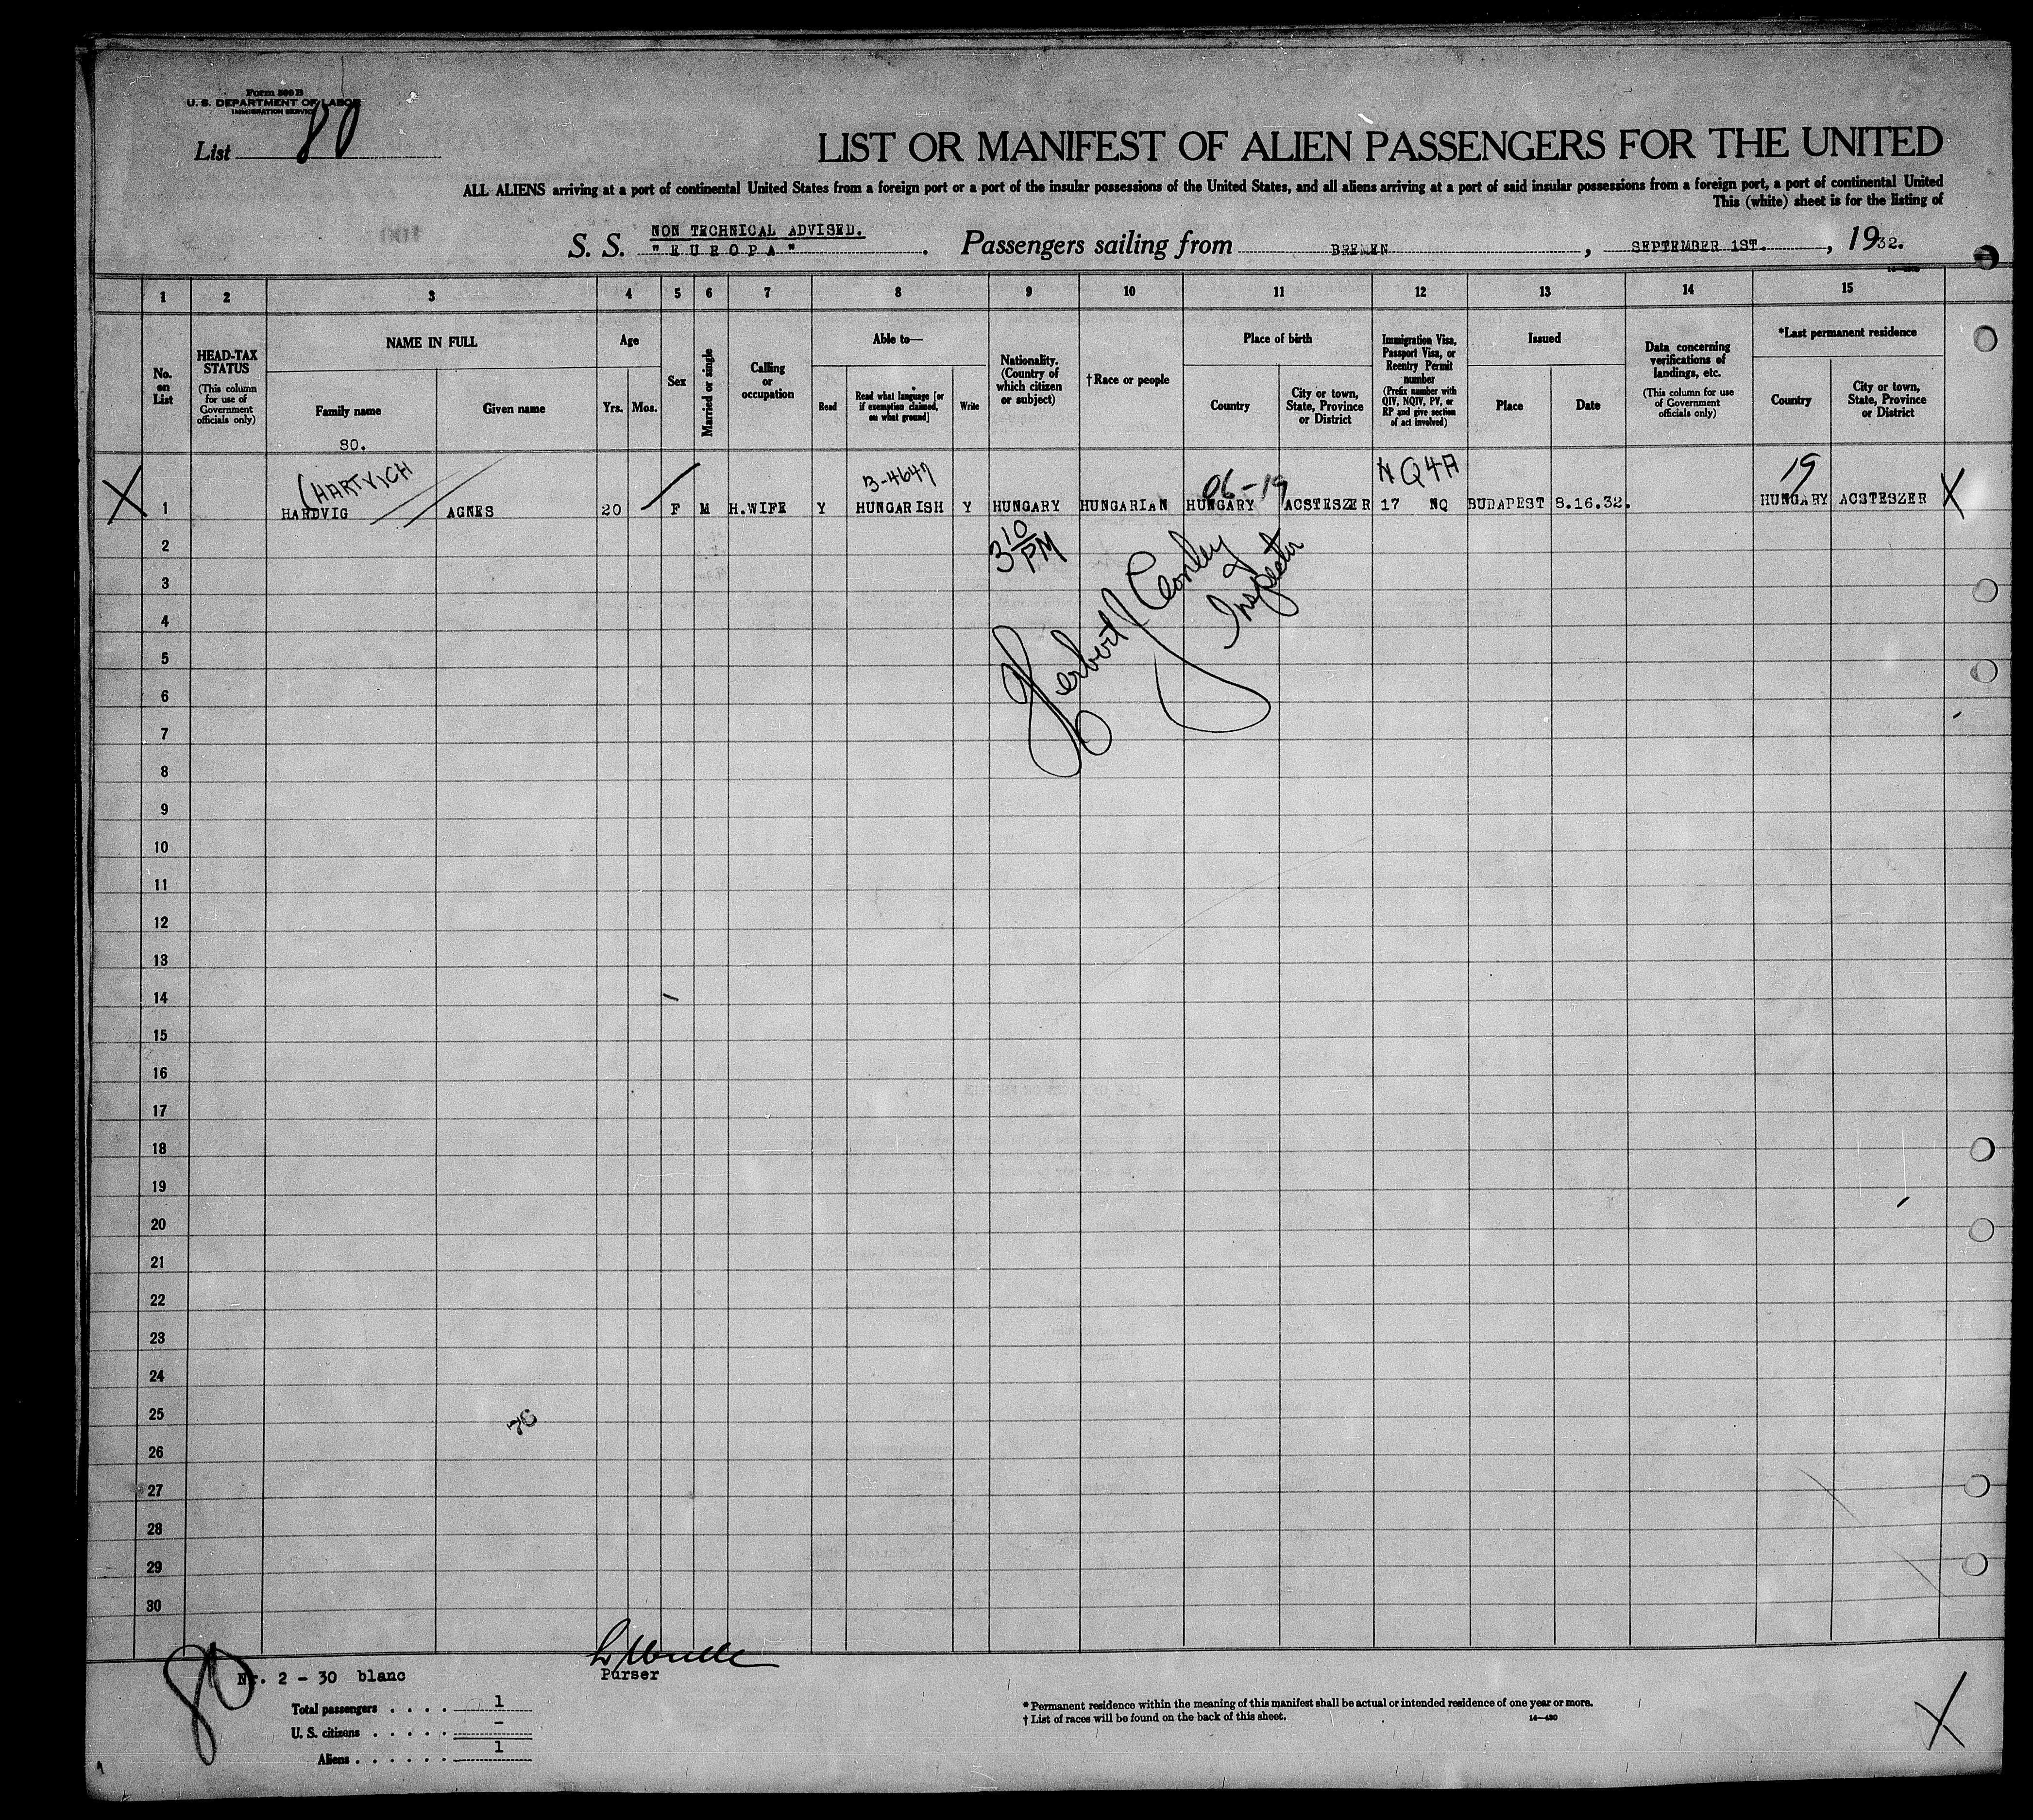 Form 500 B
U. S. DEPARTMENT OF LABOR
IMMIGRATION SERVICE
List 80
LIST OR MANIFEST OF ALIEN PASSENGERS FOR THE UNITED
ALL ALIENS arriving at a port of continental United States from a foreign port or a port of the insular possessions of the United States, and all aliens arriving at a port of said insular possessions from a foreign port, a port of continental United
This (white) sheet is for the listing of
NON TECHNICAL ADVISED.
S. S. "EUROPA". Passengers sailing from BREMEN, SEPTEMBER 1ST., 1932.
1 2 3 4 5 6 7 8 9 10 11 12 13 14 15
No. on List
HEAD-TAX STATUS
(This column for use of Government officials only)
NAME IN FULL
Family name
Given name
80.
Age
Yrs. Mos.
Sex
Married or single
Calling or occupation
Able to—
Read
Read what language [or if exemption claimed, on what ground]
Write
Nationality. (Country of which citizen or subject)
† Race or people
Place of birth
Country
City or town, State, Province or District
Immigration Visa, Passport Visa, or Reentry Permit number
(Prefix number with QIV, NQIV, PV, or RP and give section of act involved)
Issued
Place
Date
Data concerning verifications of landings, etc.
(This column for use of Government officials only)
*Last permanent residence
Country
City or town, State, Province or District
X (HARTVICH 3-4647 06-19 NQ4A 19 X
1 HARDVIG AGNES 20 F M H.WIFE Y HUNGARISH Y HUNGARY HUNGARIAN HUNGARY ACSTESZER 17 NQ BUDAPEST 8.16.32. HUNGARY ACSTESZER
3 10 PM
Herbert J Conley
Inspector
2
3
4
5
6
7
8
9
10
11
12
13
14
15
16
17
18
19
20
21
22
23
24
25
76
26
27
28
29
30
80
Nr. 2 - 30 blanc
Purser
Total passengers . . . . 1
U. S. citizens . . . . . -
Aliens . . . . . . 1
* Permanent residence within the meaning of this manifest shall be actual or intended residence of one year or more.
† List of races will be found on the back of this sheet.
14—430
X